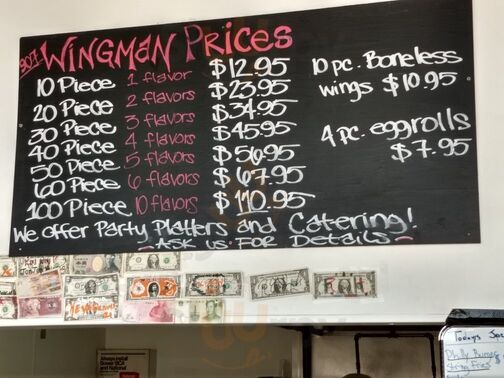 907 WINGMAN PRICES
10 Piece 1 flavor $12.95
20 Piece 2 flavors $23.95
30 Piece 3 flavors $34.95
40 Piece 4 flavors $45.95
50 Piece 5 flavors $56.95
60 Piece 6 flavors $67.95
100 Piece 10 flavors $110.95
10 pc. Boneless
wings $10.95
4 pc. eggrolls
$7.95
We offer Party Platters and Catering!
- ASK US FOR DETAILS -
Today's
Philly Burger
String Fries